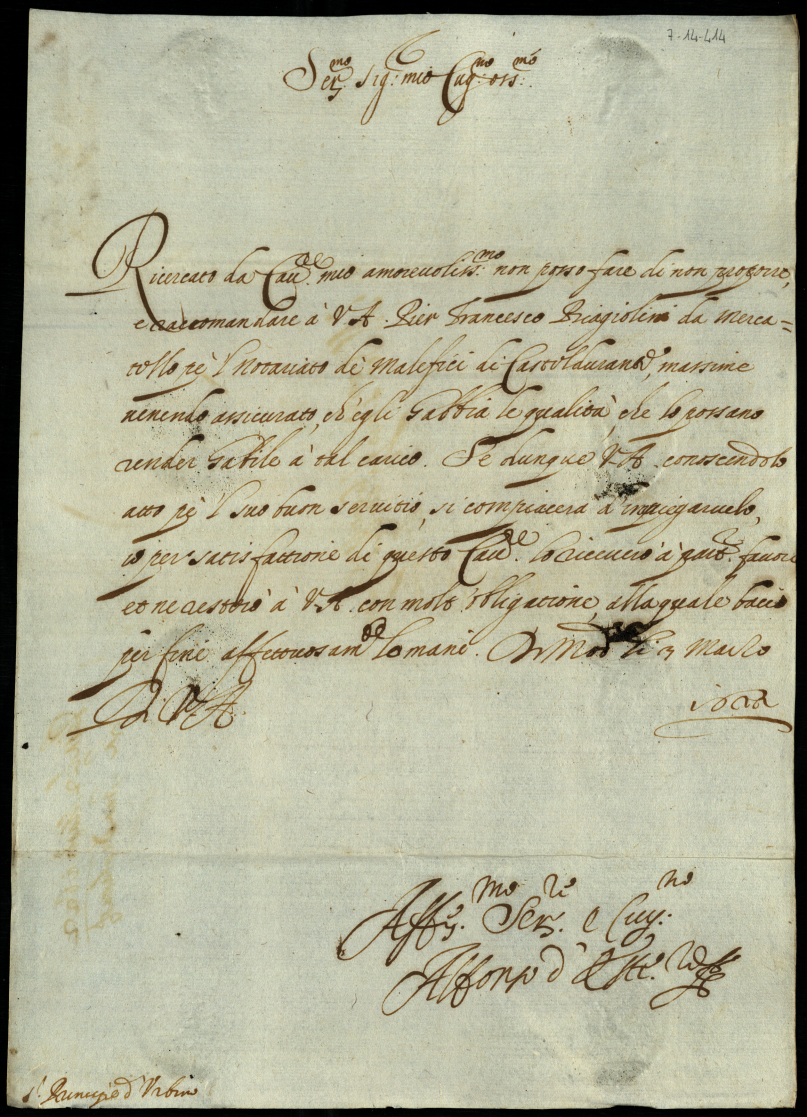 7-14-414
Ser.mo Sig.r mio Cug.no oss.mo
Ricercato da Cau.re mio amoreuoliss.mo non posso fare di non proporre,
e raccomandare à V.A. Pier Francesco Biagiolini da Merca=
tello pe'l Notariato de Malefici di Casteldurante, massime
uenendo assicurato, ch'egli habbia le qualità, che lo possano
render habile à tal carico. Se dunque V.A. conoscendolo
atto pe'l suo buon seruitio, si compiacerà d'impiegaruelo,
io per satisfattione di questo Cau.re lo riceuerò à part.re fauore
et ne resterò à V.A. con molt'obligatione, alla quale bacio
per fine affettuosam.te le mani. Di Mod.a li 3 Marzo
D. V.A.
Aff.mo Ser.re e Cug.no
Alfonso d'Este
s.r Principe d'Vrbino